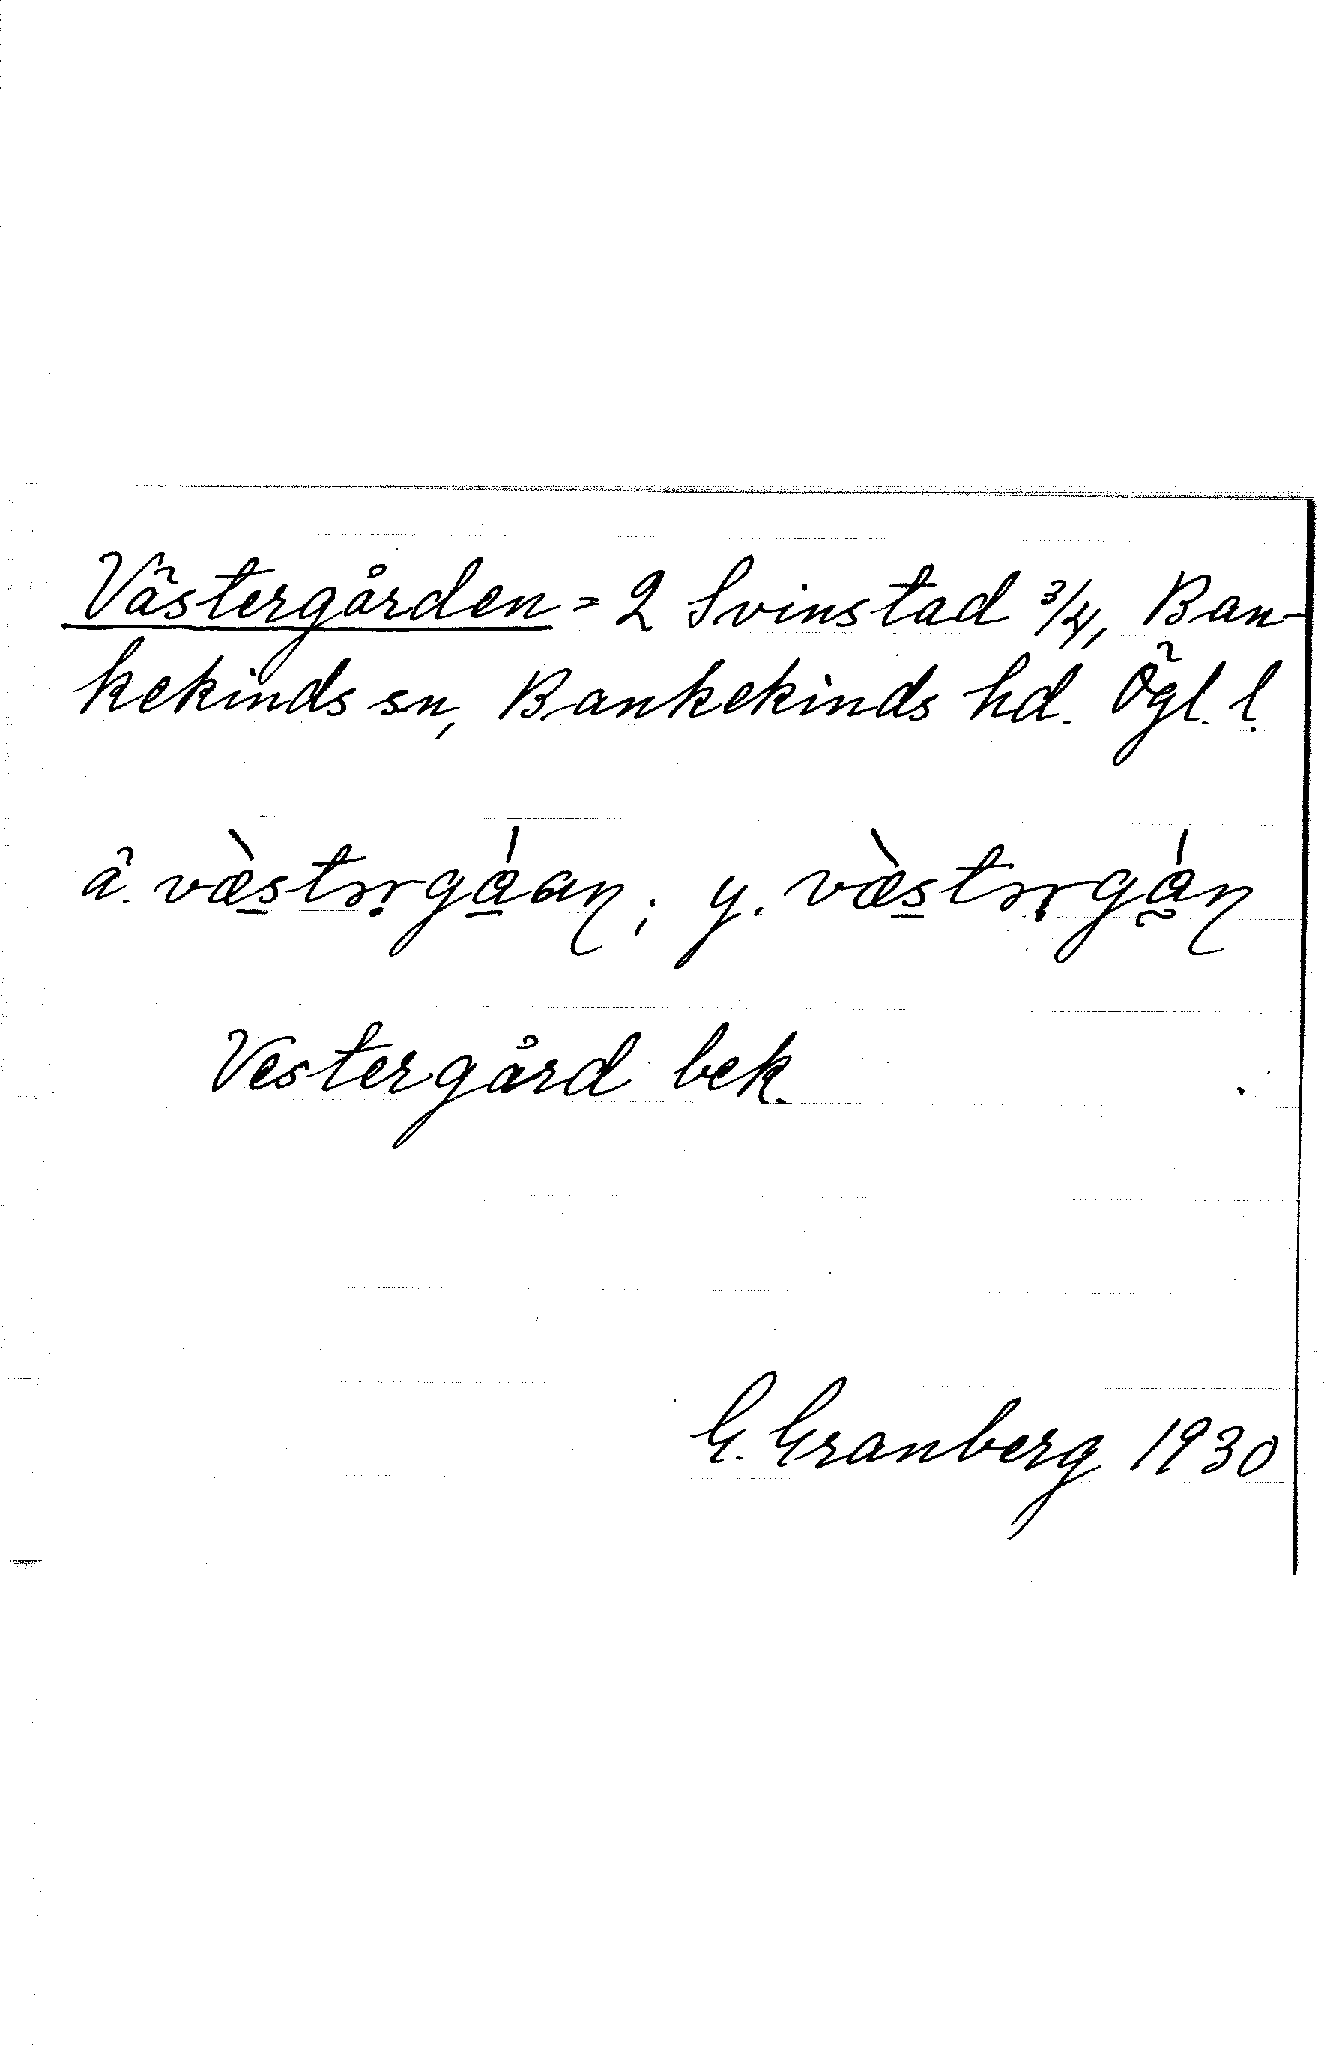 Västergården = 2 Svinstad 3/4, Ban-
kekinds sn, Bankekinds hd. Ögl. l.
ä. væ̀stərgáan; y. væ̀stərgán
Vestergård bek.
G. Granberg 1930